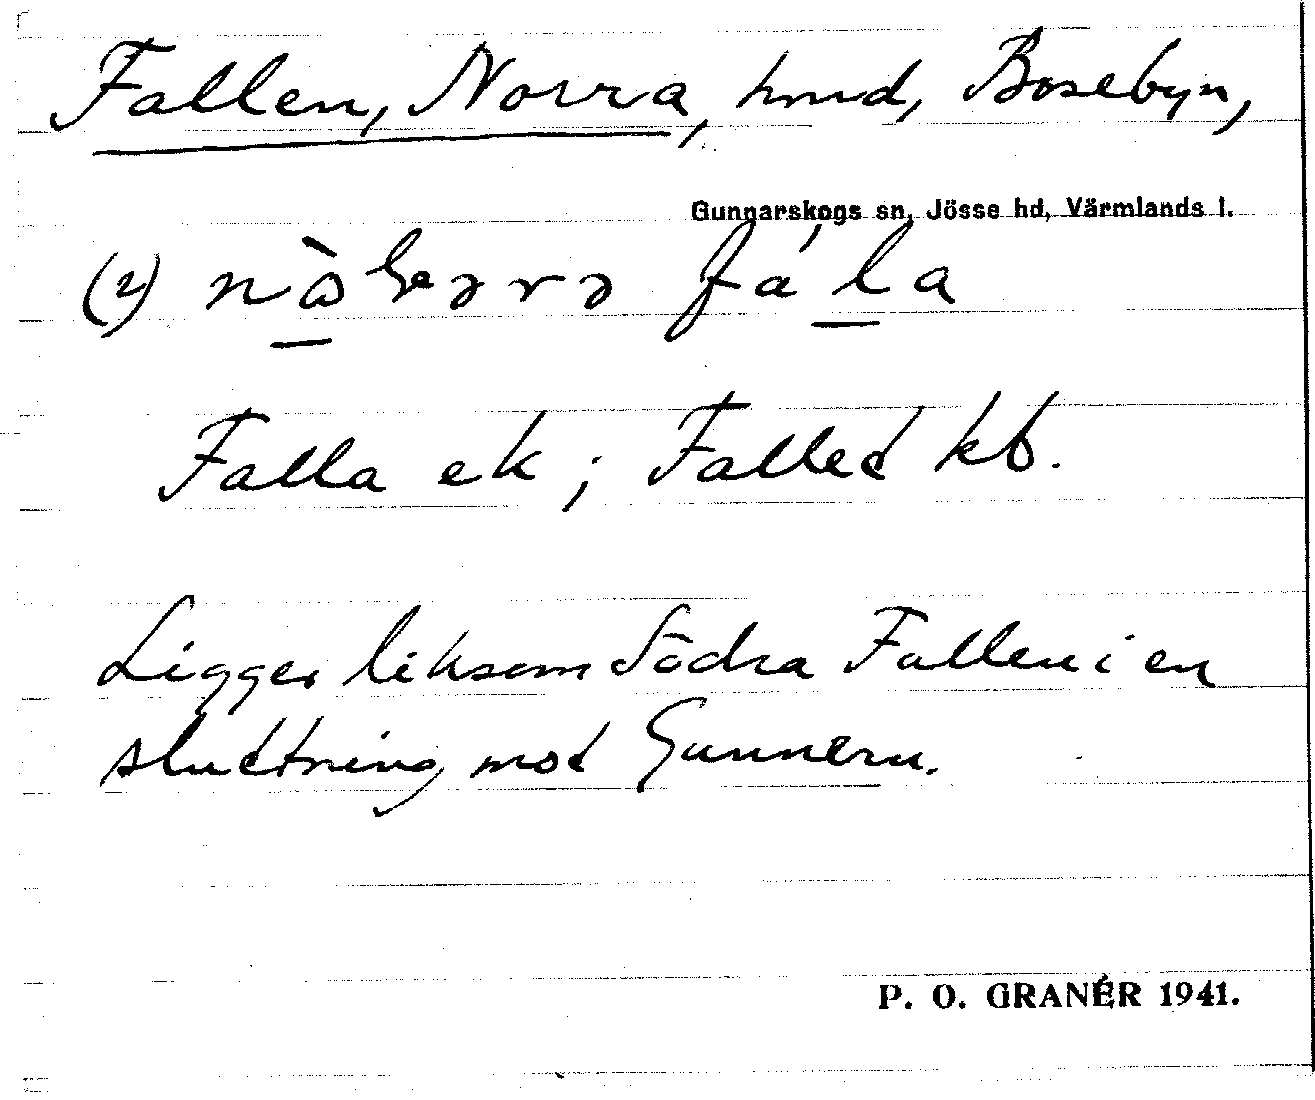 Fallen, Norra, hmd, Bosebyn,
Gunnarskogs sn, Jösse hd, Värmlands l.
(2) fá la
Falla ek; Falled kb.
Ligger liksom Södra Fallen i en
sluttning mot Gunnern.
P. O. GRANÉR 1941.